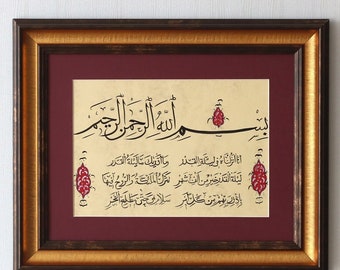 بسم الله الرحمن الرحيم
انا انزلناه في ليلة القدر وما ادريك ما ليلة القدر
ليلة القدر خير من الف شهر تنزل الملائكة والروح فيها
باذن ربهم من كل امر سلام هي حتى مطلع الفجر